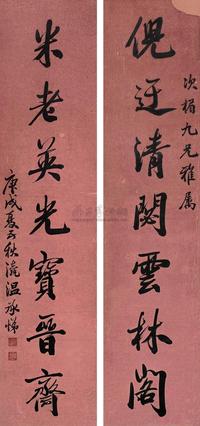 倪迂清閟雲林閣
次楣九兄雅属
米老英光寶晉齋
庚戌夏五秋瀛温承悌